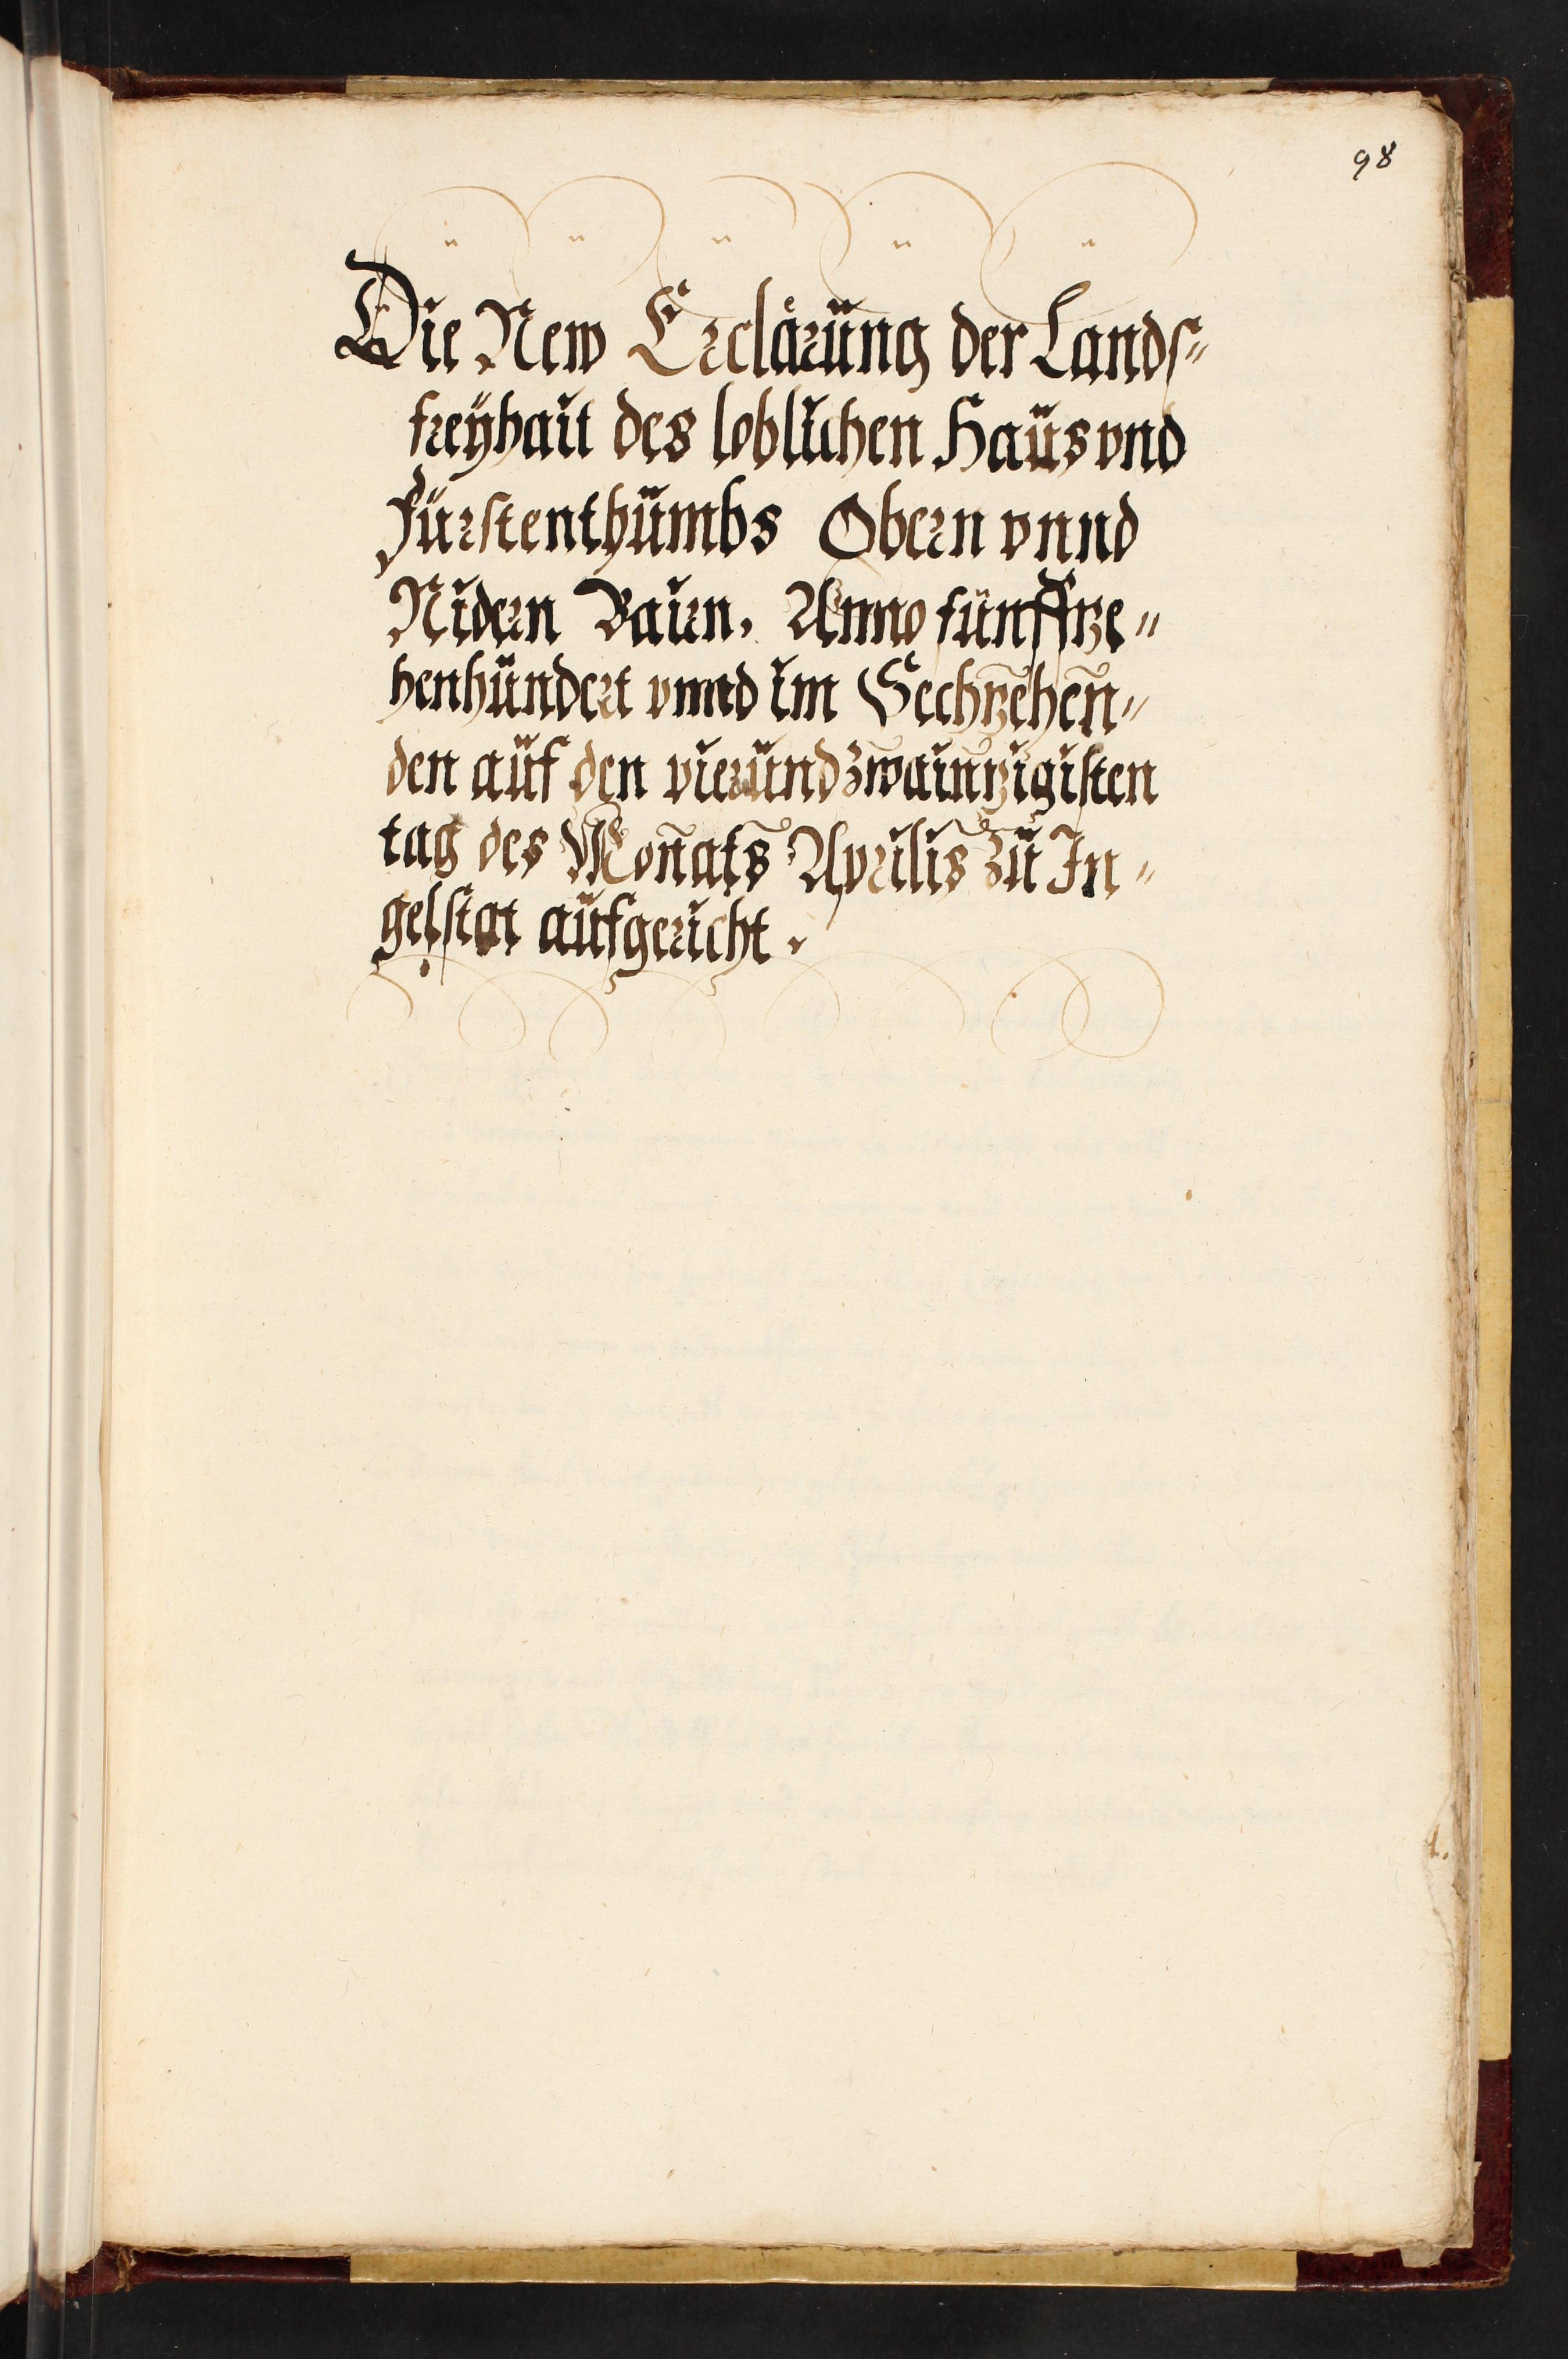 98
Die New Erclärüng der Lands⸗
freÿhait des loblichen Haüs vnd
Fürstenthümbs Obern vnnd
Nidern Bairn. Anno fünfftze⸗
henhündert vnnd im Sechtzehen̄⸗
den aüf den vieründ zwaintzigisten
tag des Mon̄ats Aprilis zü In⸗
gelstat aüfgericht.